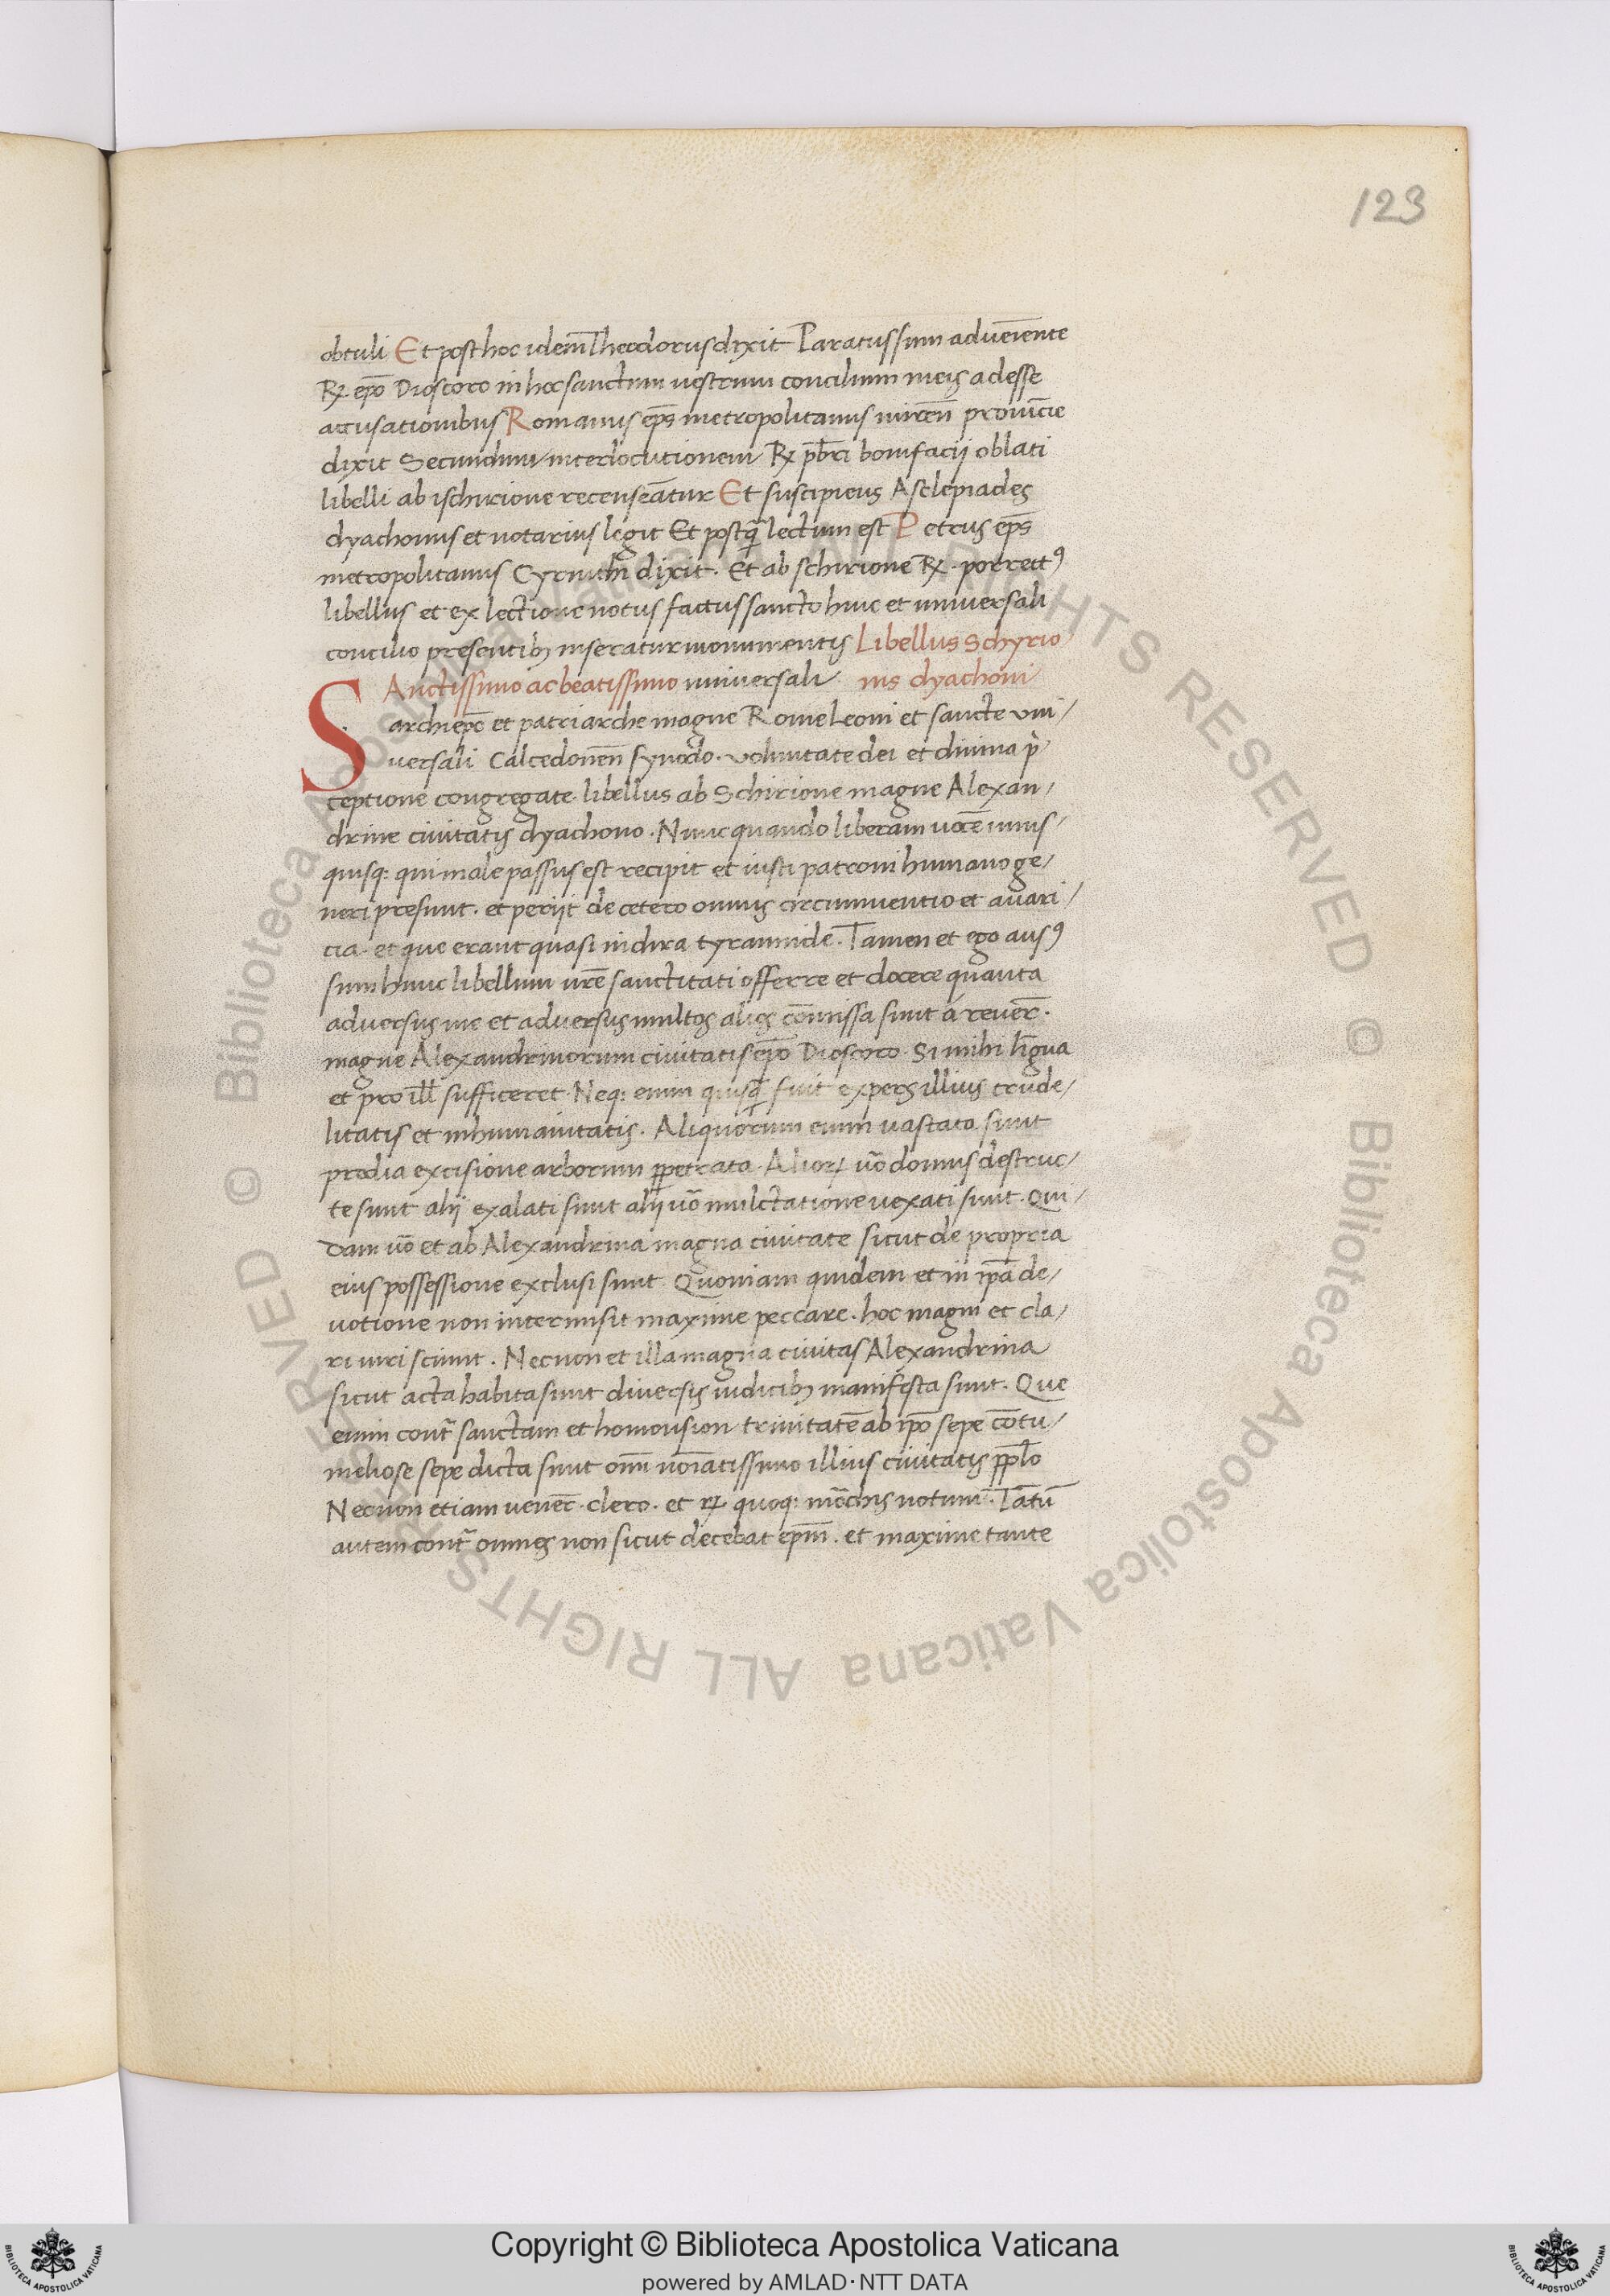 123
obtuli Et post hoc idem̄ Theodorus dixit Paratus sum aduēiente
R͛ ep̄o Dioscoro in hoc sanctum uestrum concilium meis adesse
accusationibus Romanus ep̄s metropolitanus mireñ prouīcie
dixit Secundum interlocutionem R͛ pb̄ri bonifacij oblati
libelli ab ischirione recenseātur Et suscipiens Asclepiades
dyachonus et notarius legit Et postq̄ lectum est Petrus ep̄s
metropolitanus Cyrnth̄ dixit. Et ab schirione R͛. porrectꝯ
libellus et ex lectione notus factus sancto huic et uniuersali
concilio presentibꝫ inseratur monumentis Libellus Schyrio
Sanctissimo ac beatissimo uniuersali nis dyachoni
archiep̄o et patriarche magne Rome Leoni et sancte vni/
uersali Calcedoneñ synodo. voluntate dei et diuina p̄
ceptione congregate libellus ab Schirione magne Alexan/
drine ciuitatis dyachono. Nunc quando liberam uocē unus/
quisq: qui male passus est recipit et iusti patroni humano ge/
neri presunt. et perijt de cetero omnis circumuentio et auari/
cia. et que erant quasi in dira tyrannide. Tamen et ego ausꝯ
sum hunc libellum ur̄e sanctitati offerre et docere quanta
aduersus me et aduersus multos alios cōmissa sunt á reuer̄.
magne Alexandrinorum ciuitatis ep̄o Dioscoro. Si mihi līgua
et pro ill̄ sufficeret. Neq: enim quisq̄ fuit expers illius crude/
litatis et inhumanitatis. Aliquorum enim uastata sunt
predia excisione arborum ꝑpetrata. Alioꝝ uō domus destruc/
te sunt alij exalati sunt alij uō mulctatione uexati sunt. Qui/
dam uō et ab Alexandrina magna ciuitate sicut de propria
eius possessione exclusi sunt. Quoniam quidem et in ip̄a de/
uotione non intermisit maxime peccare. hoc magni et cla/
ri uiri sciunt. Necnon et illa magna ciuitas Alexandrina
sicut acta habita sunt diuersis iudicibꝫ manifesta sunt. Que
enim cont̄ sanctam et homousion trinitatē ab ip̄o sepe cōtu/
meliose sepe dicta sunt om̄i noīatissimo illius ciuitatis ppl̄o
Necnon etiam uener̄. clero. et ꝝ quoq: mōchis notum. Tātū
autem cont̄ omnes non sicut decebat ep̄m. et maxime tante
© Biblioteca Apostolica Vaticana ALL RIGHTS RESERVED © Biblioteca Apostolica Vaticana ALL RIGHTS RESERVED
Copyright © Biblioteca Apostolica Vaticana
powered by AMLAD·NTT DATA
BIBLIOTECA APOSTOLICA VATICANA
BIBLIOTECA APOSTOLICA VATICANA